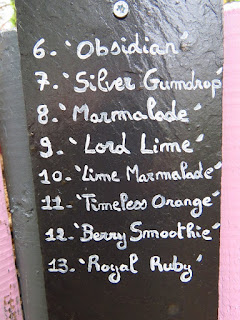 6. "Obsidian"
7. "Silver Gumdrop"
8. "Marmalade"
9. "Lord Lime"
10. "Lime Marmalade"
11. "Timeless Orange"
12. "Berry Smoothie"
13. "Royal Ruby"